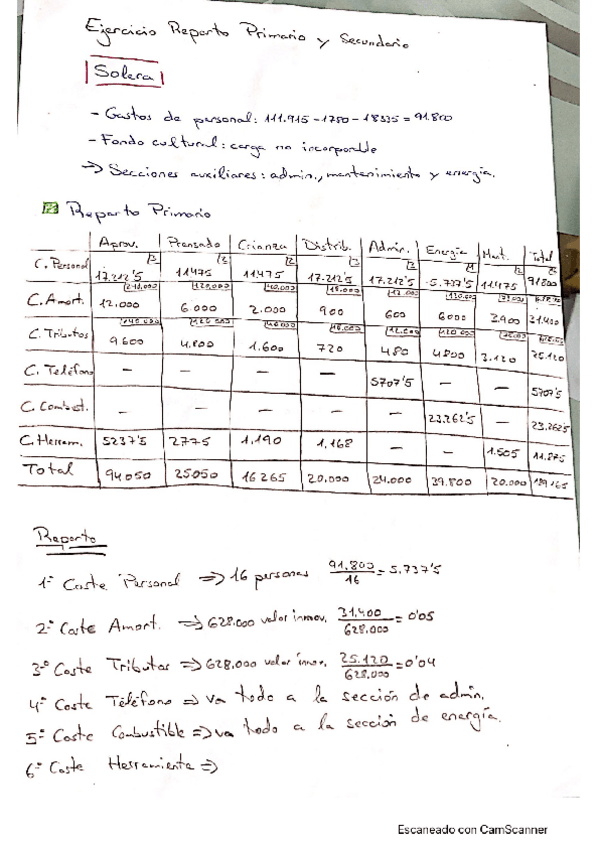 Ejercicio Reparto Primario y Secundario
Solera
- Gastos de personal: 111.915 - 1780 - 18335 = 91.800
- Fondo cultural: carga no incorporable
→ Secciones auxiliares: admin., mantenimiento y energía.
Reparto Primario
Aprov. Prensado Crianza Distrib. Admin. Energía Mant. Total
C. Personal 17.212'5 11475 11475 17.212'5 17.212'5 5.737'5 11475 91800
C. Amort. 12.000 6.000 2.000 900 600 6000 3.900 31.400
C. Tributos 9600 4.800 1.600 720 480 4800 3.120 25.120
C. Teléfono — — — — 5707'5 — — 5707'5
C. Combust. — — — — — 23.262'5 — 23.262'5
C. Herram. 5237'5 2775 1.190 1,168 — — 1.505 11.875
Total 94050 25050 16265 20.000 24.000 39.800 20.000
Reparto
1º Coste Personal ⇒ 16 personas 91.800/16 = 5.737'5
2º Coste Amort. ⇒ 628.000 valor inmov. 31.400/628.000 = 0'05
3º Coste Tributos ⇒ 628.000 valor inmov. 25.120/628.000 = 0'04
4º Coste Teléfono ⇒ va todo a la sección de admin.
5º Coste Combustible ⇒ va todo a la sección de energía.
6º Coste Herramienta ⇒
Escaneado con CamScanner